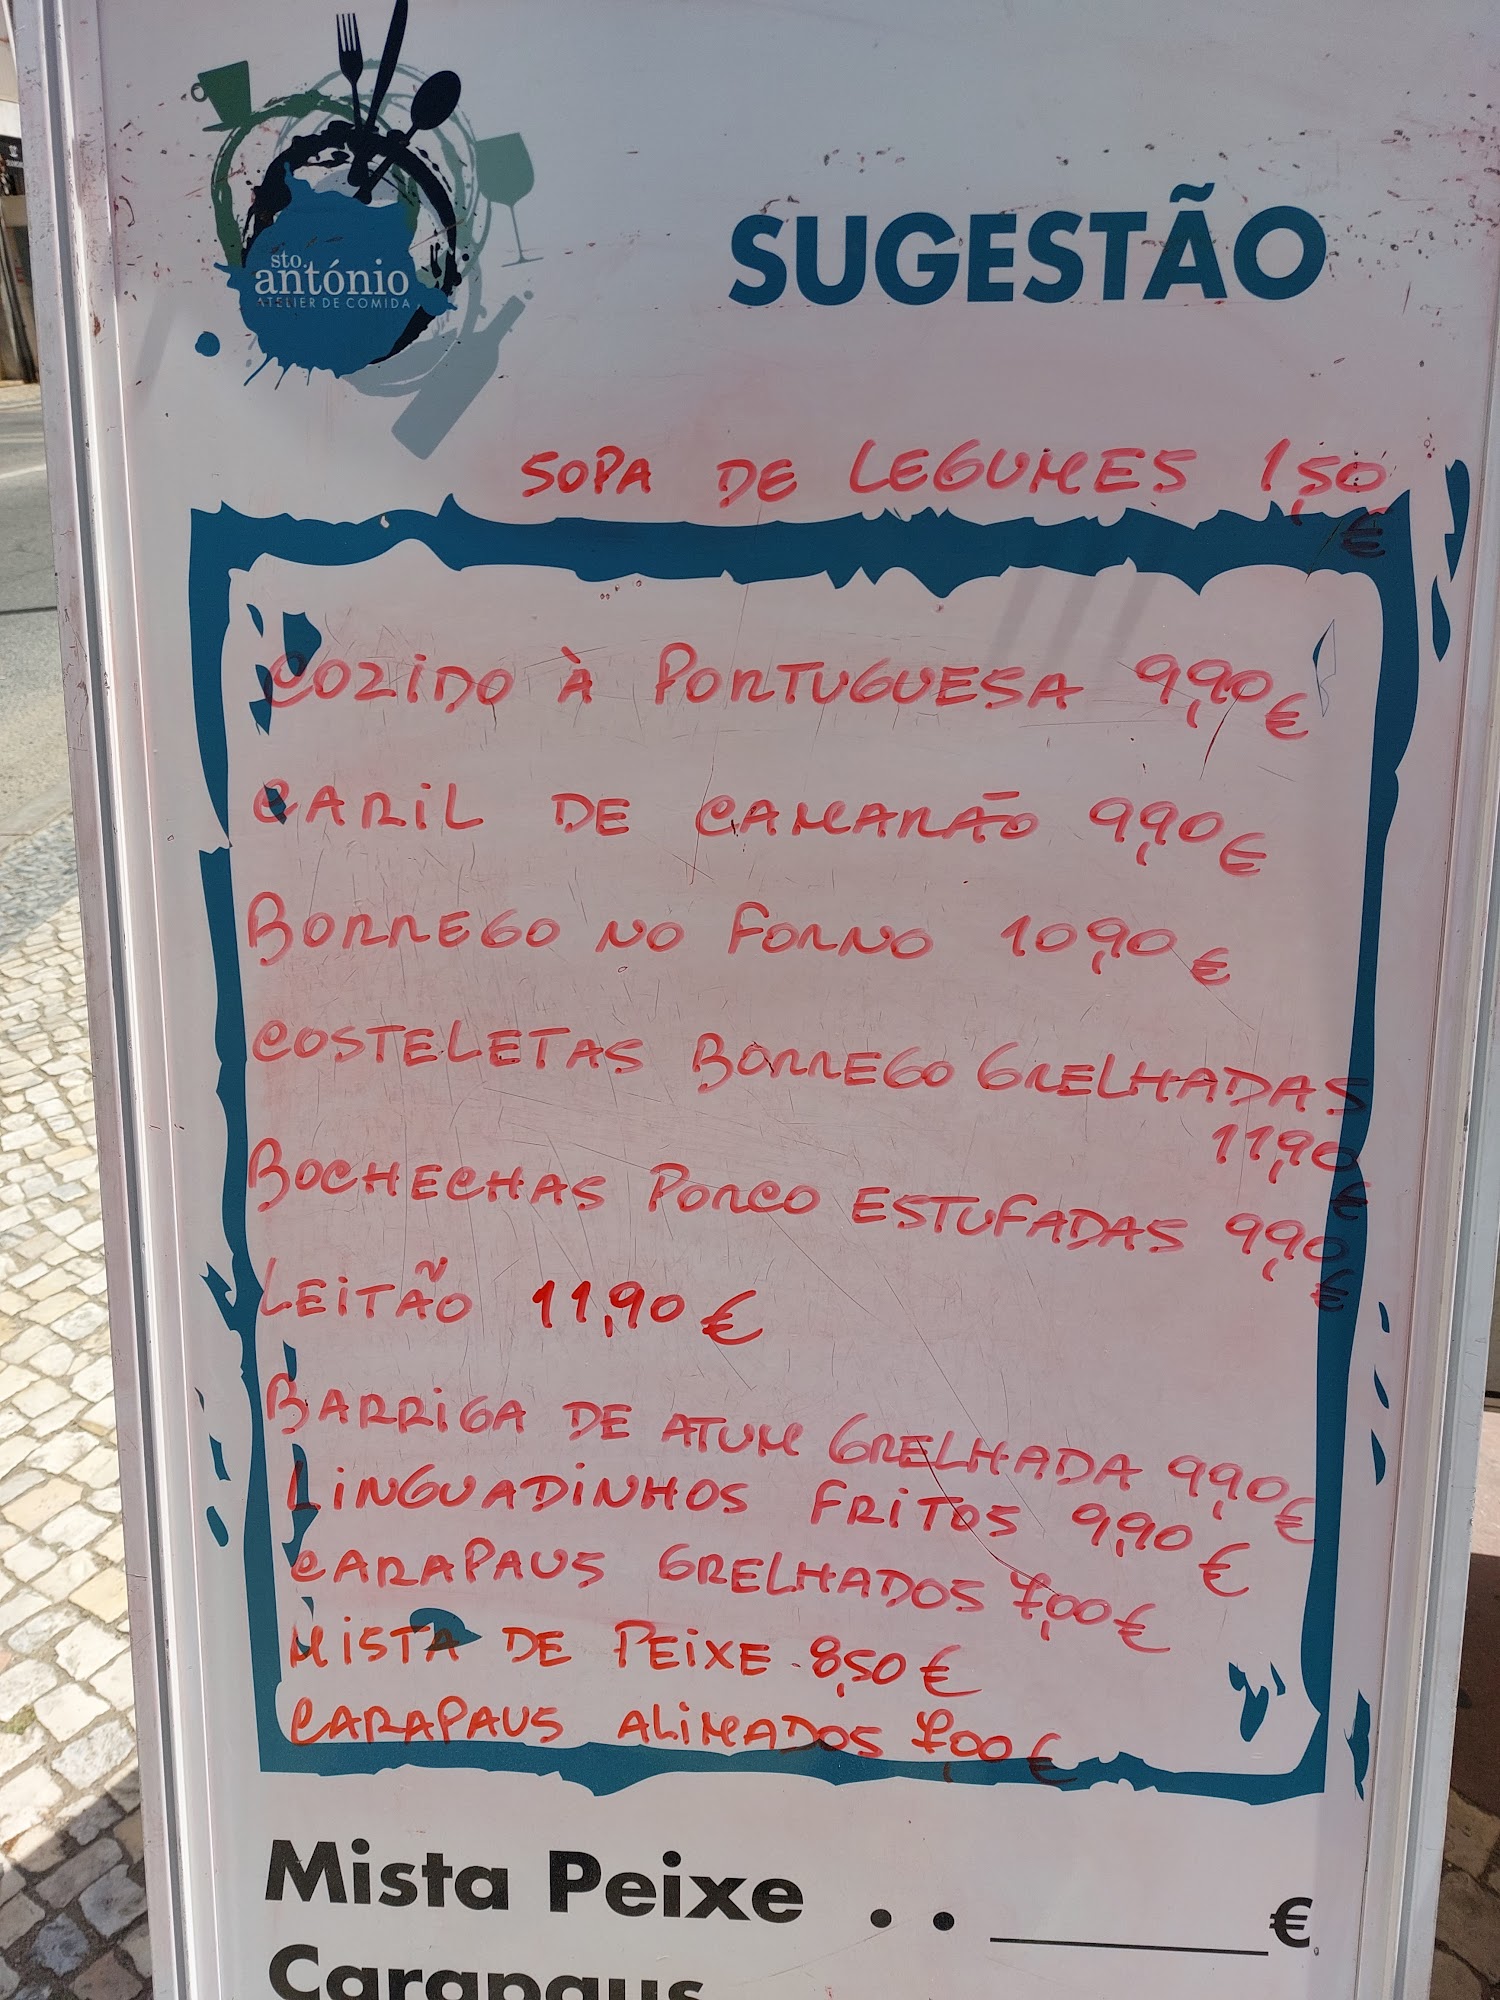 sto.
antónio
ATELIER DE COMIDA
SUGESTÃO
SOPA DE LEGUMES 1,50
€
COZIDO À PORTUGUESA 9,90€
CARIL DE CAMARÃO 9,90€
BORREGO NO FORNO 10,90€
COSTELETAS BORREGO GRELHADAS
11,90
€
BOCHECHAS PORCO ESTUFADAS 9,90
€
LEITÃO 11,90€
BARRIGA DE ATUM GRELHADA 9,90€
LINGUADINHOS FRITOS 9,90€
CARAPAUS GRELHADOS 7,00€
MISTA DE PEIXE 8,50€
CARAPAUS ALIMADOS 7,00€
Mista Peixe . . ______€
Carapaus